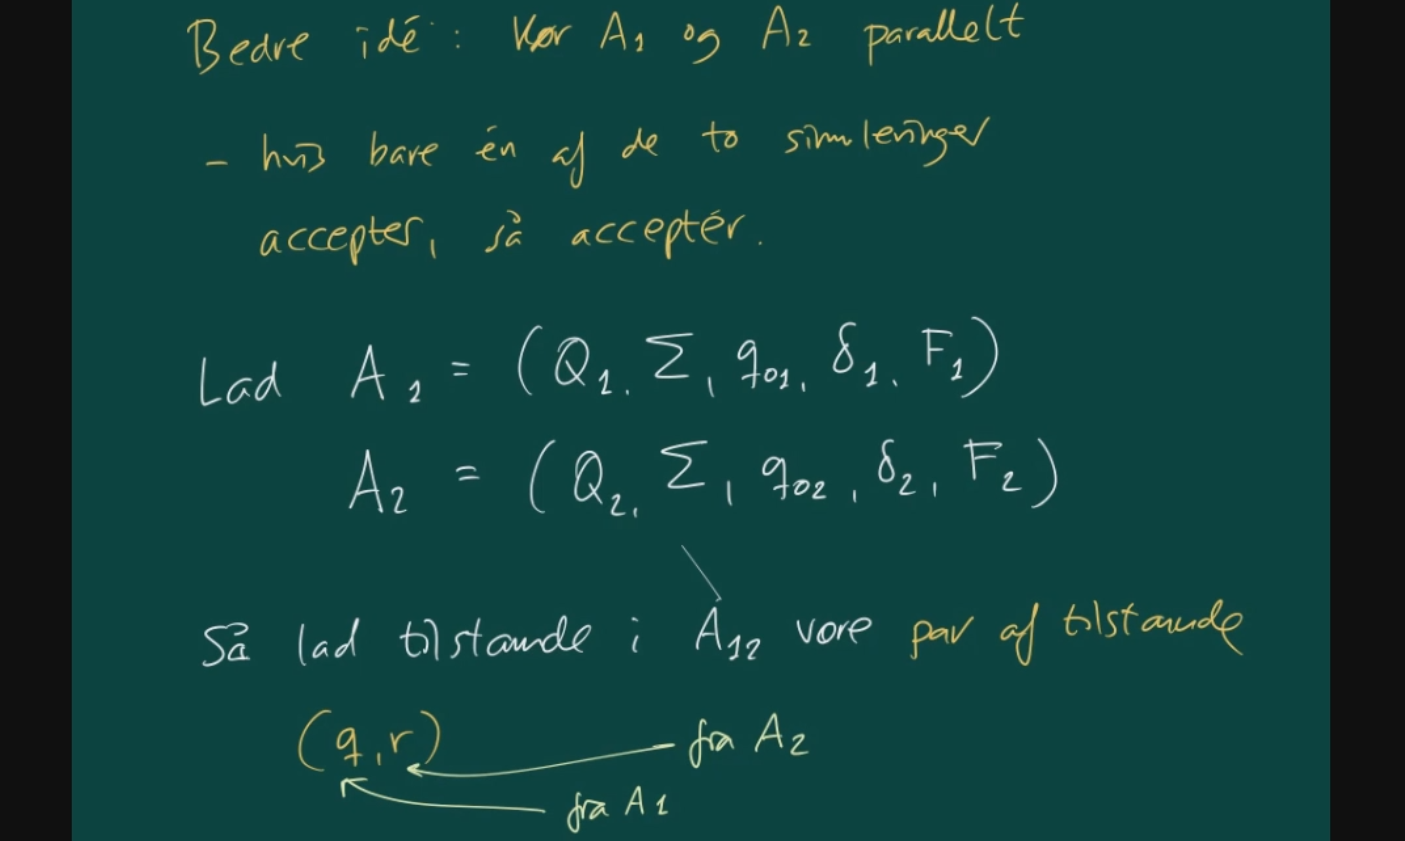 Bedre idé : Kør A₁ og A₂ parallelt
- hvis bare én af de to simuleringer
accepter, så acceptér.
Lad A₁ = (Q₁, Σ, q₀₁, δ₁, F₁)
A₂ = (Q₂, Σ, q₀₂, δ₂, F₂)
Så lad tilstande i A₁₂ være par af tilstande
(q,r) fra A₂
fra A₁